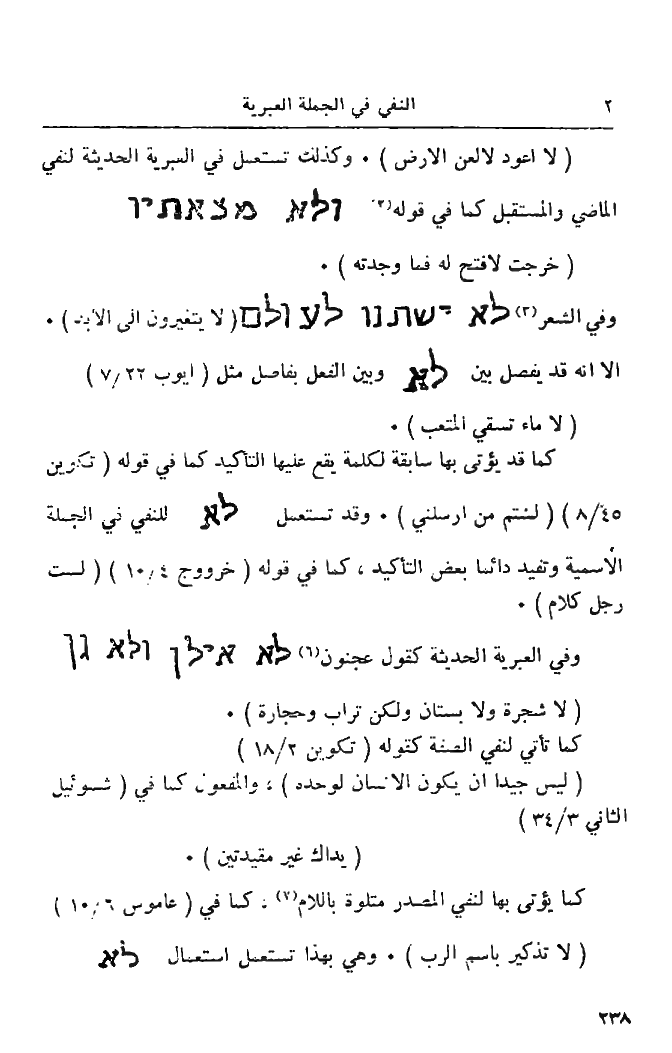 ٢ النفي في الجملة العبرية
( لا اعود لالعن الارض ) ٠ وكذلك تستعمل في العبرية الحديثة لنفي
الماضي والمستقبل كما في قوله(٢) ולא מצאתיו
( خرجت لافتح له فما وجدته ) ٠
وفي الشعر(٣) לא ישתנו לעולם ( لا يتغيرون الى الابد ) ٠
الا انه قد يفصل بين לא وبين الفعل بفاصل مثل ( ايوب ٧/٢٢ )
( لا ماء تسقي المتعب ) ٠
كما قد يؤتى بها سابقة لكلمة يقع عليها التأكيد كما في قوله ( تكوين
٨/٤٥ ) ( لستم من ارسلني ) ٠ وقد تستعمل לא للنفي في الجملة
الأسمية وتفيد دائما بعض التأكيد ، كما في قوله ( خرووج ١٠/٤ ) ( لست
رجل كلام ) ٠
وفي العبرية الحديثة كقول عجنون(٦) לא אילן ולא גן
( لا شجرة ولا بستان ولكن تراب وحجارة ) ٠
كما تأتي لنفي الصفة كقوله ( تكوين ١٨/٢ )
( ليس جيدا ان يكون الانسان لوحده ) ، والمفعول كما في ( شموئيل
الثاني ٣٤/٣ )
( يداك غير مقيدتين ) ٠
كما يؤتى بها لنفي المصدر متلوة باللام(٧) ، كما في ( عاموس ١٠/٦ )
( لا تذكير باسم الرب ) ٠ وهي بهذا تستعمل استعمال לא
٢٣٨